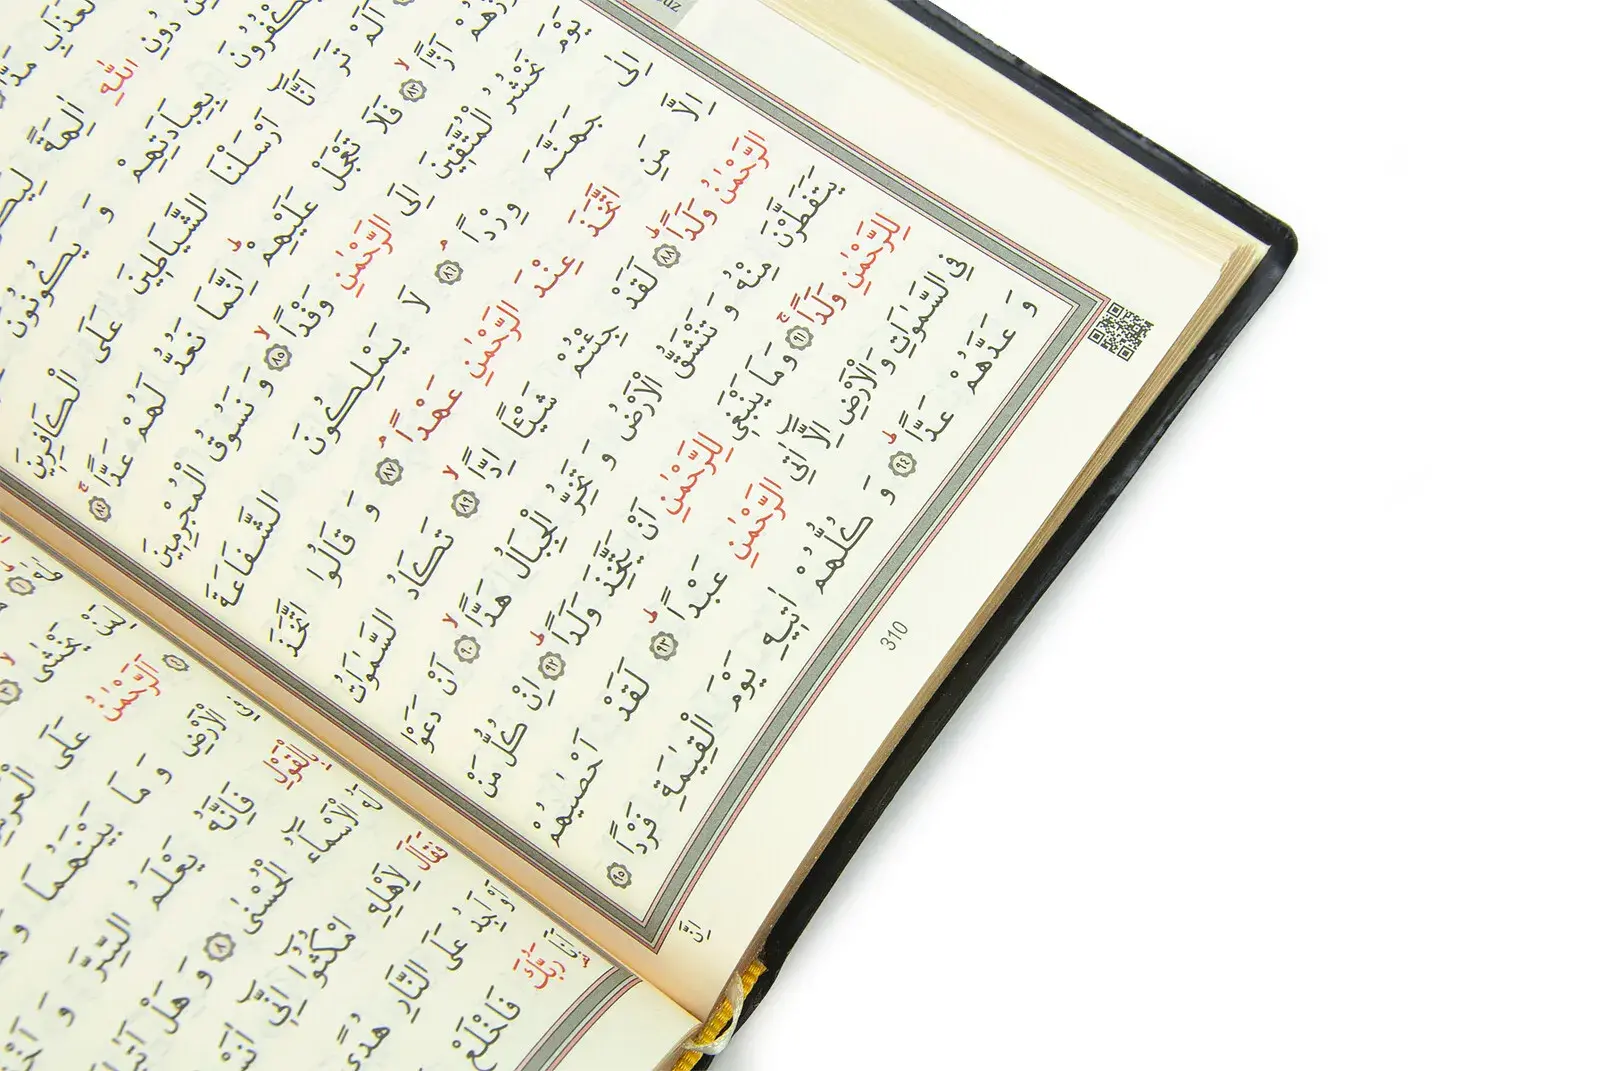 الْعَذَابِ مَدًّا
دُونِ اللّٰهِ اٰلِهَةً
يَكْفُرُونَ بِعِبَادَتِهِمْ وَ يَكُونُونَ
اَلَمْ تَرَ اَنَّٓا اَرْسَلْنَا الشَّيَاطِينَ عَلَى الْكَافِرِينَ
اَزًّا ۙ ٨٣ فَلَا تَعْجَلْ عَلَيْهِمْ ۜ اِنَّمَا نَعُدُّ لَهُمْ عَدًّا ۚ ٨٤
يَوْمَ نَحْشُرُ الْمُتَّقِينَ اِلَى الرَّحْمٰنِ وَفْدًا ۙ ٨٥ وَ نَسُوقُ الْمُجْرِمِينَ
اِلٰى جَهَنَّمَ وِرْدًا ۢ ٨٦ لَا يَمْلِكُونَ الشَّفَاعَةَ
اِلَّا مَنِ اتَّخَذَ عِنْدَ الرَّحْمٰنِ عَهْدًا ۢ ٨٧ وَ قَالُوا اتَّخَذَ
الرَّحْمٰنُ وَلَدًا ۜ ٨٨ لَقَدْ جِئْتُمْ شَيْئًا اِدًّا ۙ ٨٩ تَكَادُ السَّمٰوَاتُ
يَتَفَطَّرْنَ مِنْهُ وَ تَنْشَقُّ الْاَرْضُ وَ تَخِرُّ الْجِبَالُ هَدًّا ۙ ٩٠ اَنْ دَعَوْا
لِلرَّحْمٰنِ وَلَدًا ۚ ٩١ وَمَا يَنْبَغِى لِلرَّحْمٰنِ اَنْ يَتَّخِذَ وَلَدًا ۜ ٩٢ اِنْ كُلُّ مَنْ
فِى السَّمٰوَاتِ وَ الْاَرْضِ اِلَّٓا اٰتِى الرَّحْمٰنِ عَبْدًا ۜ ٩٣ لَقَدْ اَحْصٰيهُمْ
وَ عَدَّهُمْ عَدًّا ۜ ٩٤ وَ كُلُّهُمْ اٰتِيهِ يَوْمَ الْقِيٰمَةِ فَرْدًا ٩٥
310
لِمَنْ يَخْشٰى ۙ ٣
اَلرَّحْمٰنُ عَلَى
الْاَرْضِ وَ مَا بَيْنَهُمَا
بِالْقَوْلِ فَاِنَّهُ يَعْلَمُ السِّرَّ وَ
لَهُ الْاَسْمَٓاءُ الْحُسْنٰى ٨ وَ هَلْ
فَقَالَ لِاَهْلِهِ امْكُثُٓوا اِنِّٓى
اَوْ اَجِدُ عَلَى النَّارِ هُدًى
اَنَا رَبُّكَ فَاخْلَعْ